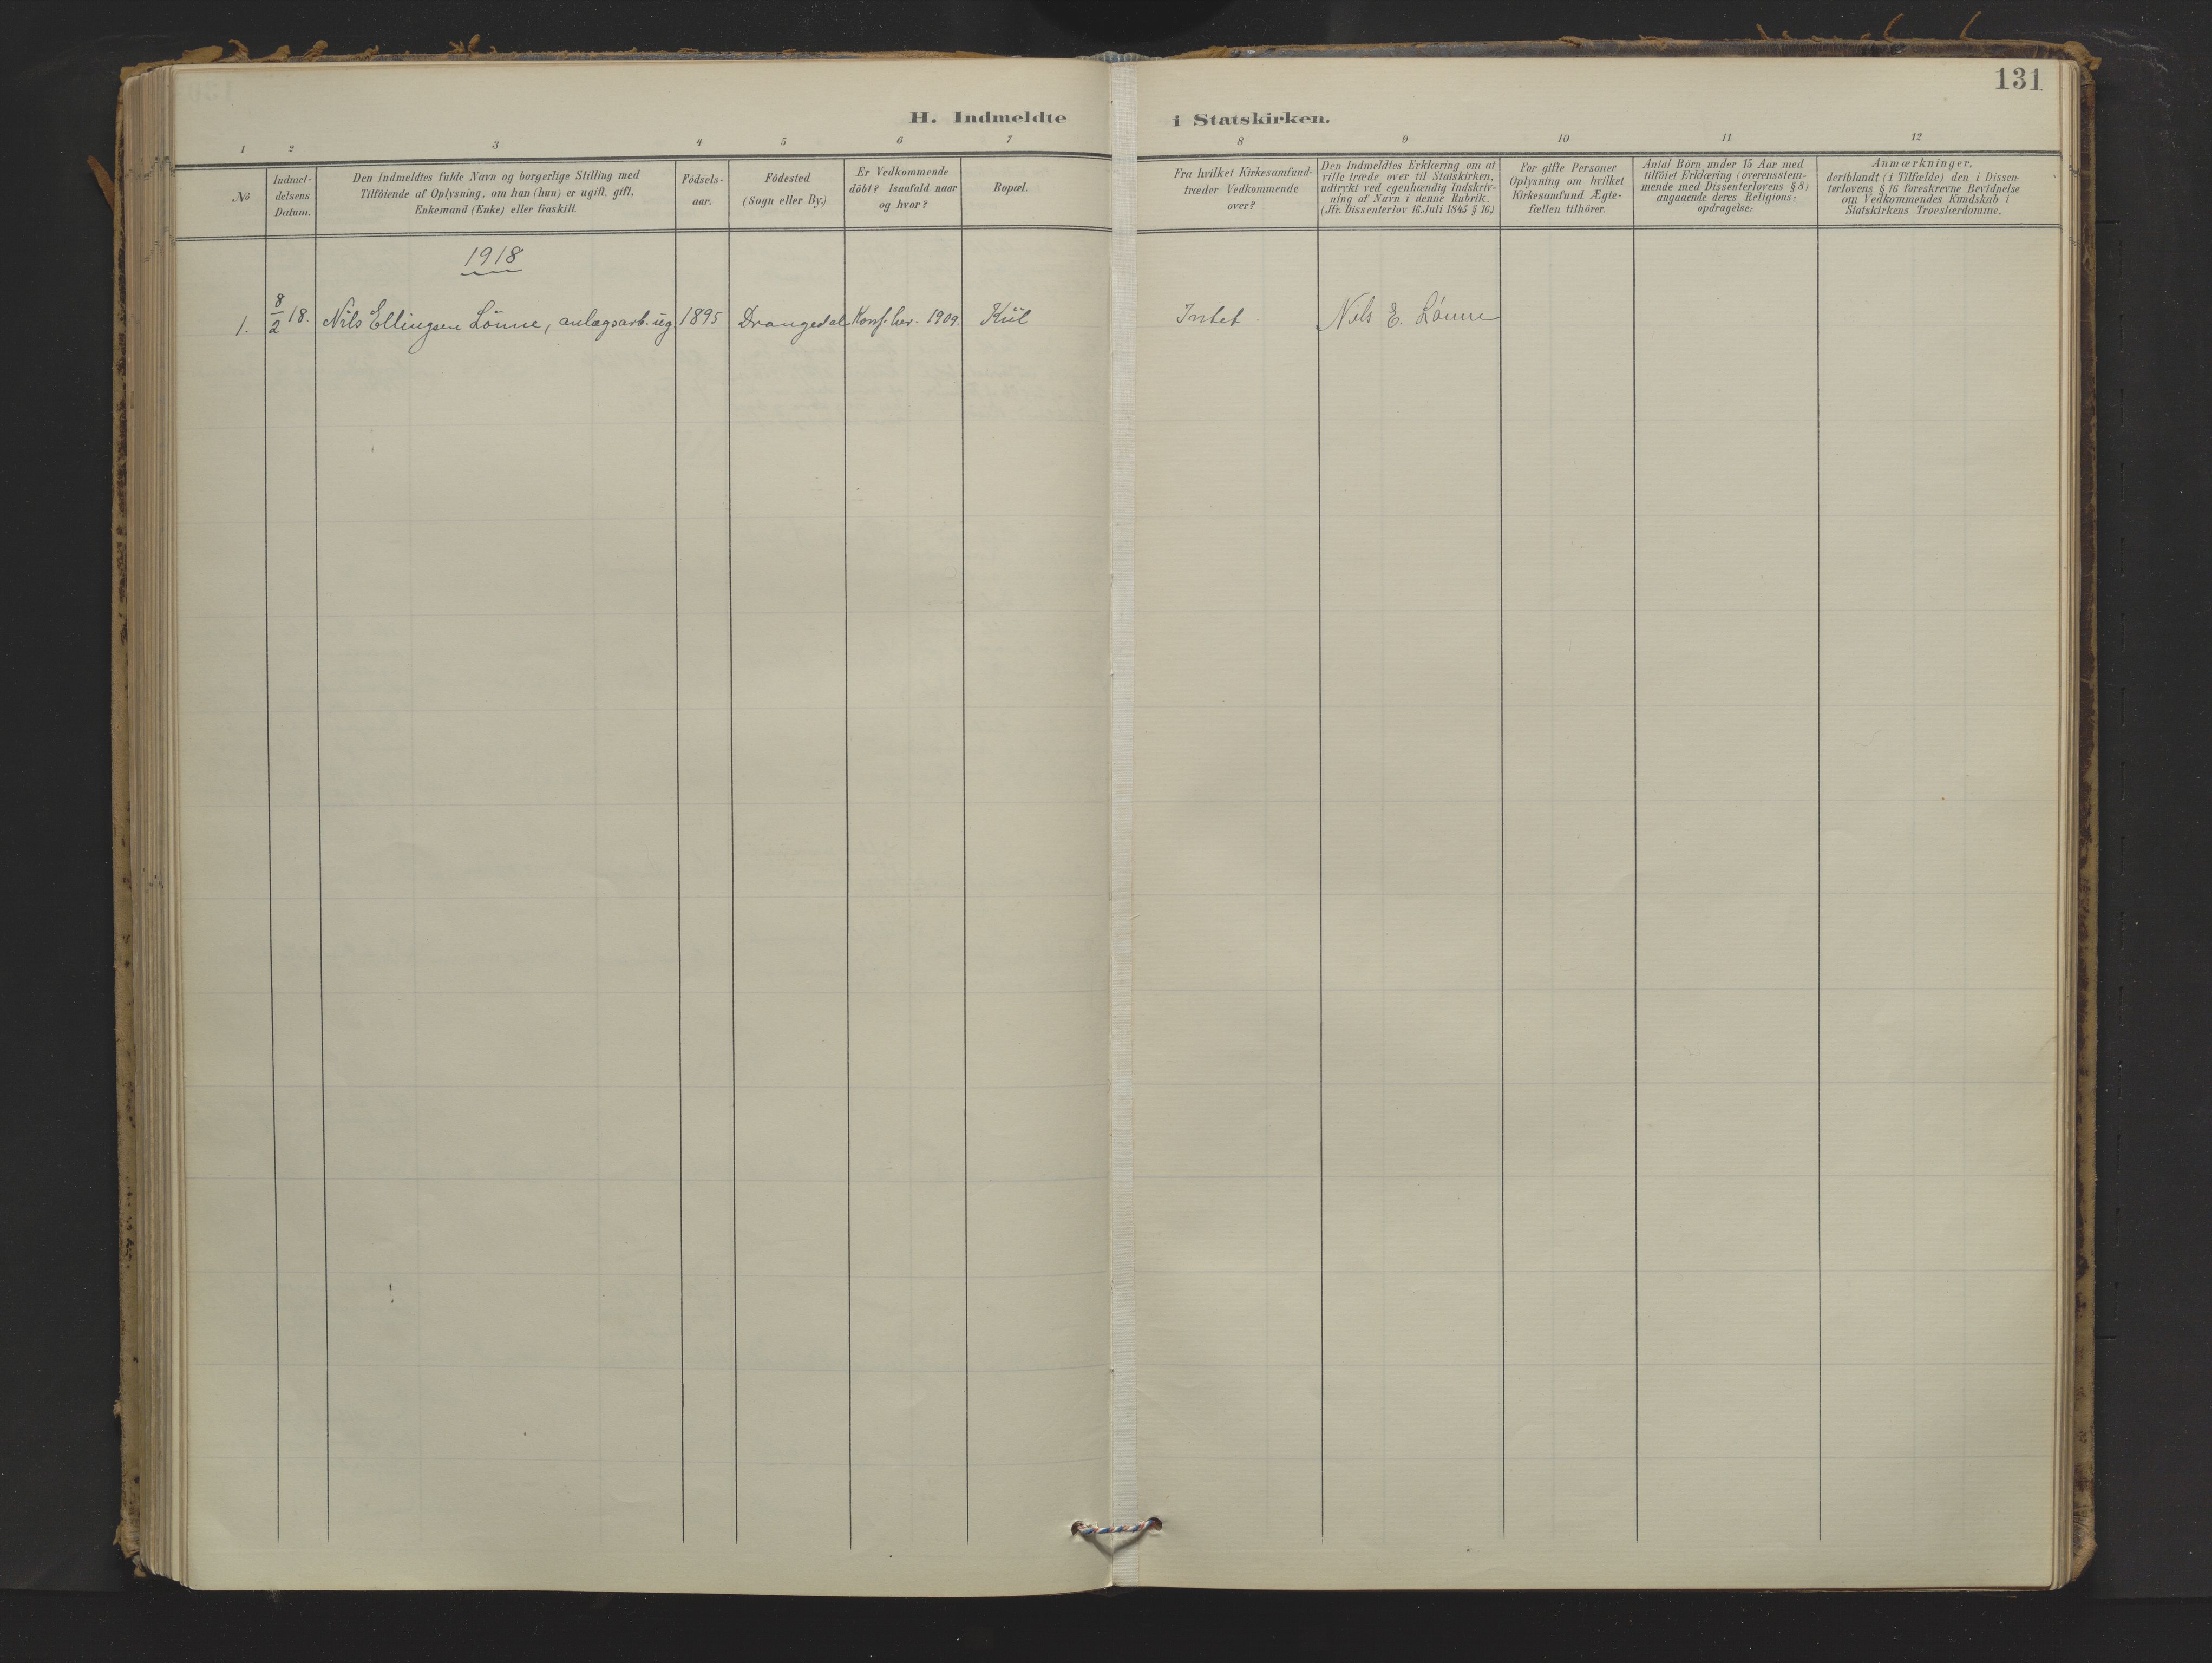 131
H. Indmeldte i Statskirken.
1 2 3 4 5 6 7 8 9 10 11 12
№
Indmel-
delsens
Datum.
Den Indmeldtes fulde Navn og borgerlige Stilling med
Tilföiende af Oplysning, om han (hun) er ugift, gift,
Enkemand (Enke) eller fraskilt.
Födsels-
aar.
Födested
(Sogn eller By.)
Er Vedkommende
döbt? Isaafald naar
og hvor?
Bopæl.
Fra hvilket Kirkesamfund
træder Vedkommende
over?
Den Indmeldtes Erklæring om at
ville træde over til Statskirken,
udtrykt ved egenhændig Indskriv-
ning af Navn i denne Rubrik.
(Jfr. Dissenterlov 16.Juli 1845 § 16.)
For gifte Personer
Oplysning om hvilket
Kirkesamfund Ægte-
fællen tilhörer.
Antal Börn under 15 Aar med
tilföiet Erklæring (overensstem-
mende med Dissenterlovens § 8)
angaaende deres Religions-
opdragelse:
Anmærkninger,
deriblandt (i Tilfælde) den i Dissen-
terlovens § 16 foreskrevne Bevidnelse
om Vedkommendes Kundskab i
Statskirkens Troeslærdomme.
1918
1. 8/2 18. Nils Ellingsen Lönne, anlægsarb. ug. 1895 Drangedal Konf. her. 1909. Kiil Intet. Nils E. Lönne